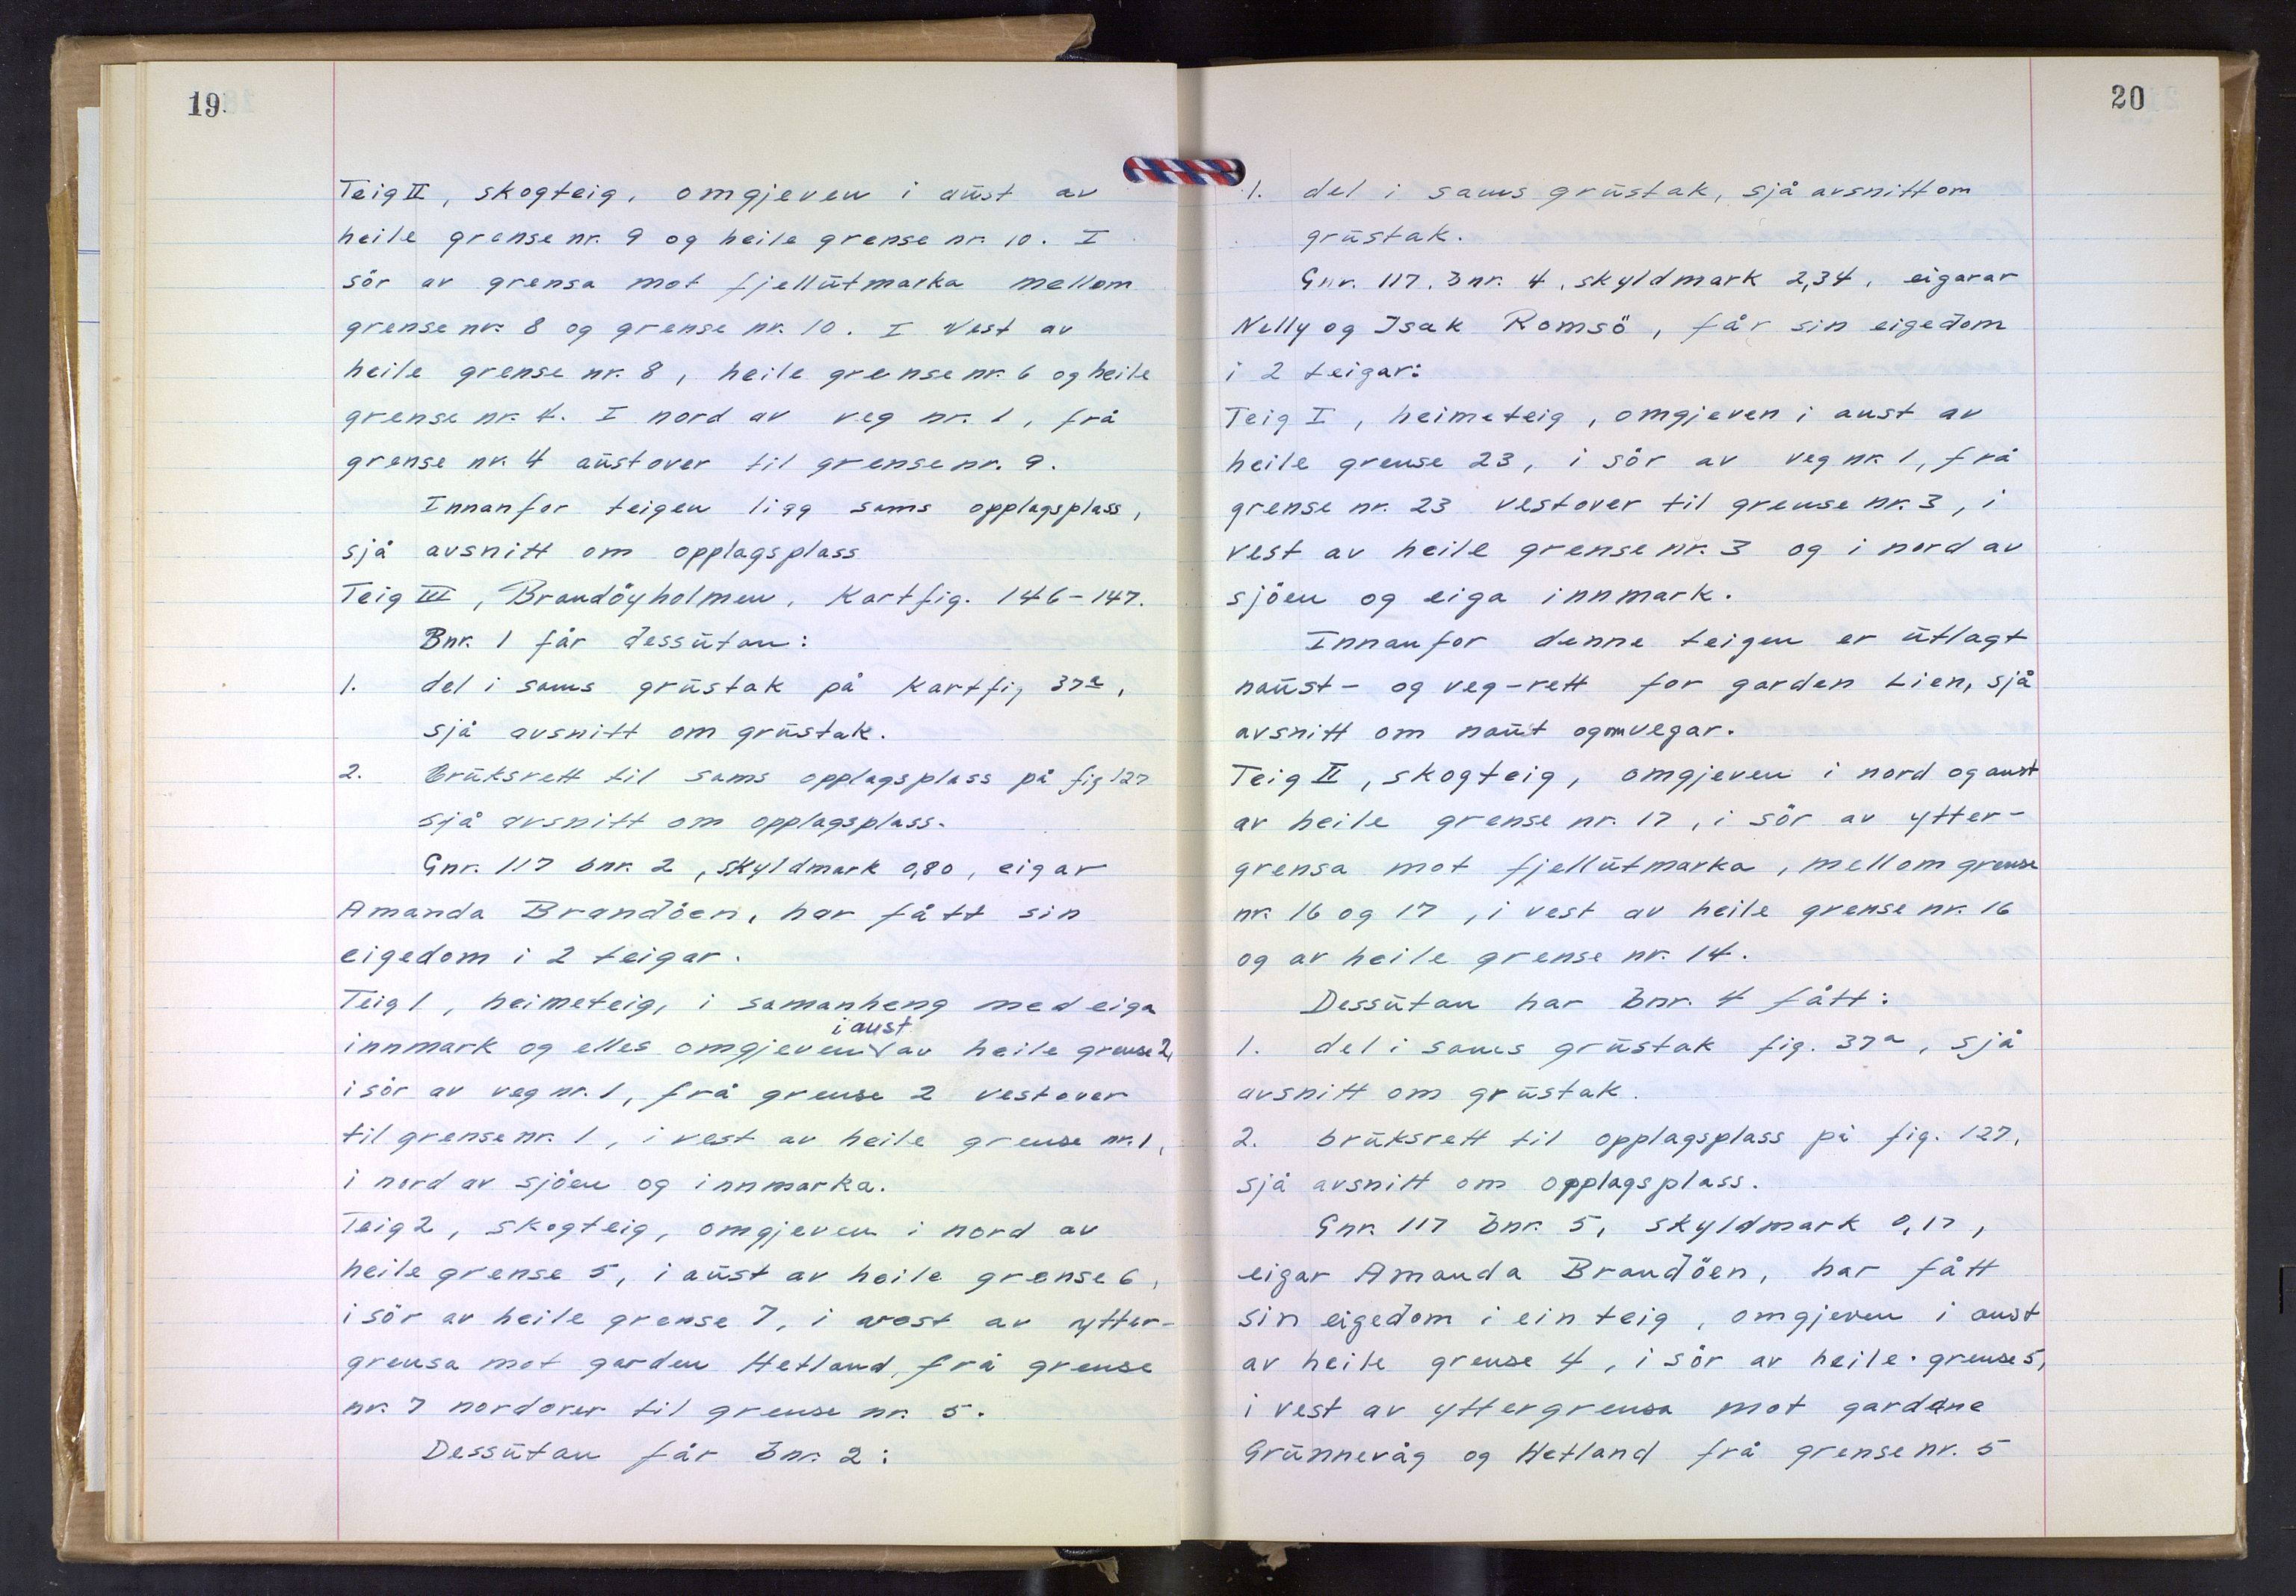 19
Teig II, skogteig, omgjeven i aust av
heile grense nr. 9 og heile grense nr. 10. I
sör av grensa mot fjellutmarka mellom
grense nr. 8 og grense nr. 10. I vest av
heile grense nr. 8, heile grense nr. 6 og heile
grense nr. 4. I nord av veg nr. 1, frå
grense nr. 4 austover til grense nr. 9.
Innanfor teigen ligg sams opplagsplass,
sjå avsnitt om opplagsplass
Teig III, Brandöyholmen, Kartfig. 146-147.
Bnr. 1 får dessutan:
1. del i sams grustak på Kartfig 37a,
sjå avsnitt om grustak.
2. Bruksrett til sams opplagsplass på fig 127
sjå avsnitt om opplagsplass.
Gnr. 117 bnr. 2, skyldmark 0,80, eigar
Amanda Brandöen, har fått sin
eigedom i 2 teigar.
Teig 1, heimeteig, i samanheng med eiga
i aust
innmark og elles omgjeven av heile grense 2,
i sör av veg nr. 1, frå grense 2 vestover
til grense nr. 1, i vest av heile grense nr. 1,
i nord av sjöen og innmarka.
Teig 2, skogteig, omgjeven i nord av
heile grense 5, i aust av heile grense 6,
i sör av heile grense 7, i vest av ytter-
grensa mot garden Hetland, frå grense
nr. 7 nordover til grense nr. 5.
Dessutan får bnr. 2:
20
1. del i sams grustak, sjå avsnitt om
grustak.
Gnr. 117, bnr. 4, skyldmark 2,34, eigarar
Nelly og Isak Romsö, får sin eigedom
i 2 teigar:
Teig I, heimeteig, omgjeven i aust av
heile grense 23, i sör av veg nr. 1, frå
grense nr. 23 vestover til grense nr. 3, i
vest av heile grense nr. 3 og i nord av
sjöen og eiga innmark.
Innanfor denne teigen er utlagt
naust- og veg-rett for garden Lien, sjå
avsnitt om naut og om vegar.
Teig II, skogteig, omgjeven i nord og aust
av heile grense nr. 17, i sör av ytter-
grensa mot fjellutmarka, mellom grense
nr. 16 og 17, i vest av heile grense nr. 16
og av heile grense nr. 14.
Dessutan har bnr. 4 fått:
1. del i sams grustak fig. 37a, sjå
avsnitt om grustak.
2. bruksrett til opplagsplass på fig. 127,
sjå avsnitt om opplagsplass.
Gnr. 117 bnr. 5, skyldmark 0,17,
eigar Amanda Brandöen, har fått
sin eigedom i ein teig, omgjeven i aust
av heile grense 4, i sör av heile grense 5,
i vest av yttergrensa mot gardane
Grunnevåg og Hetland frå grense nr. 5